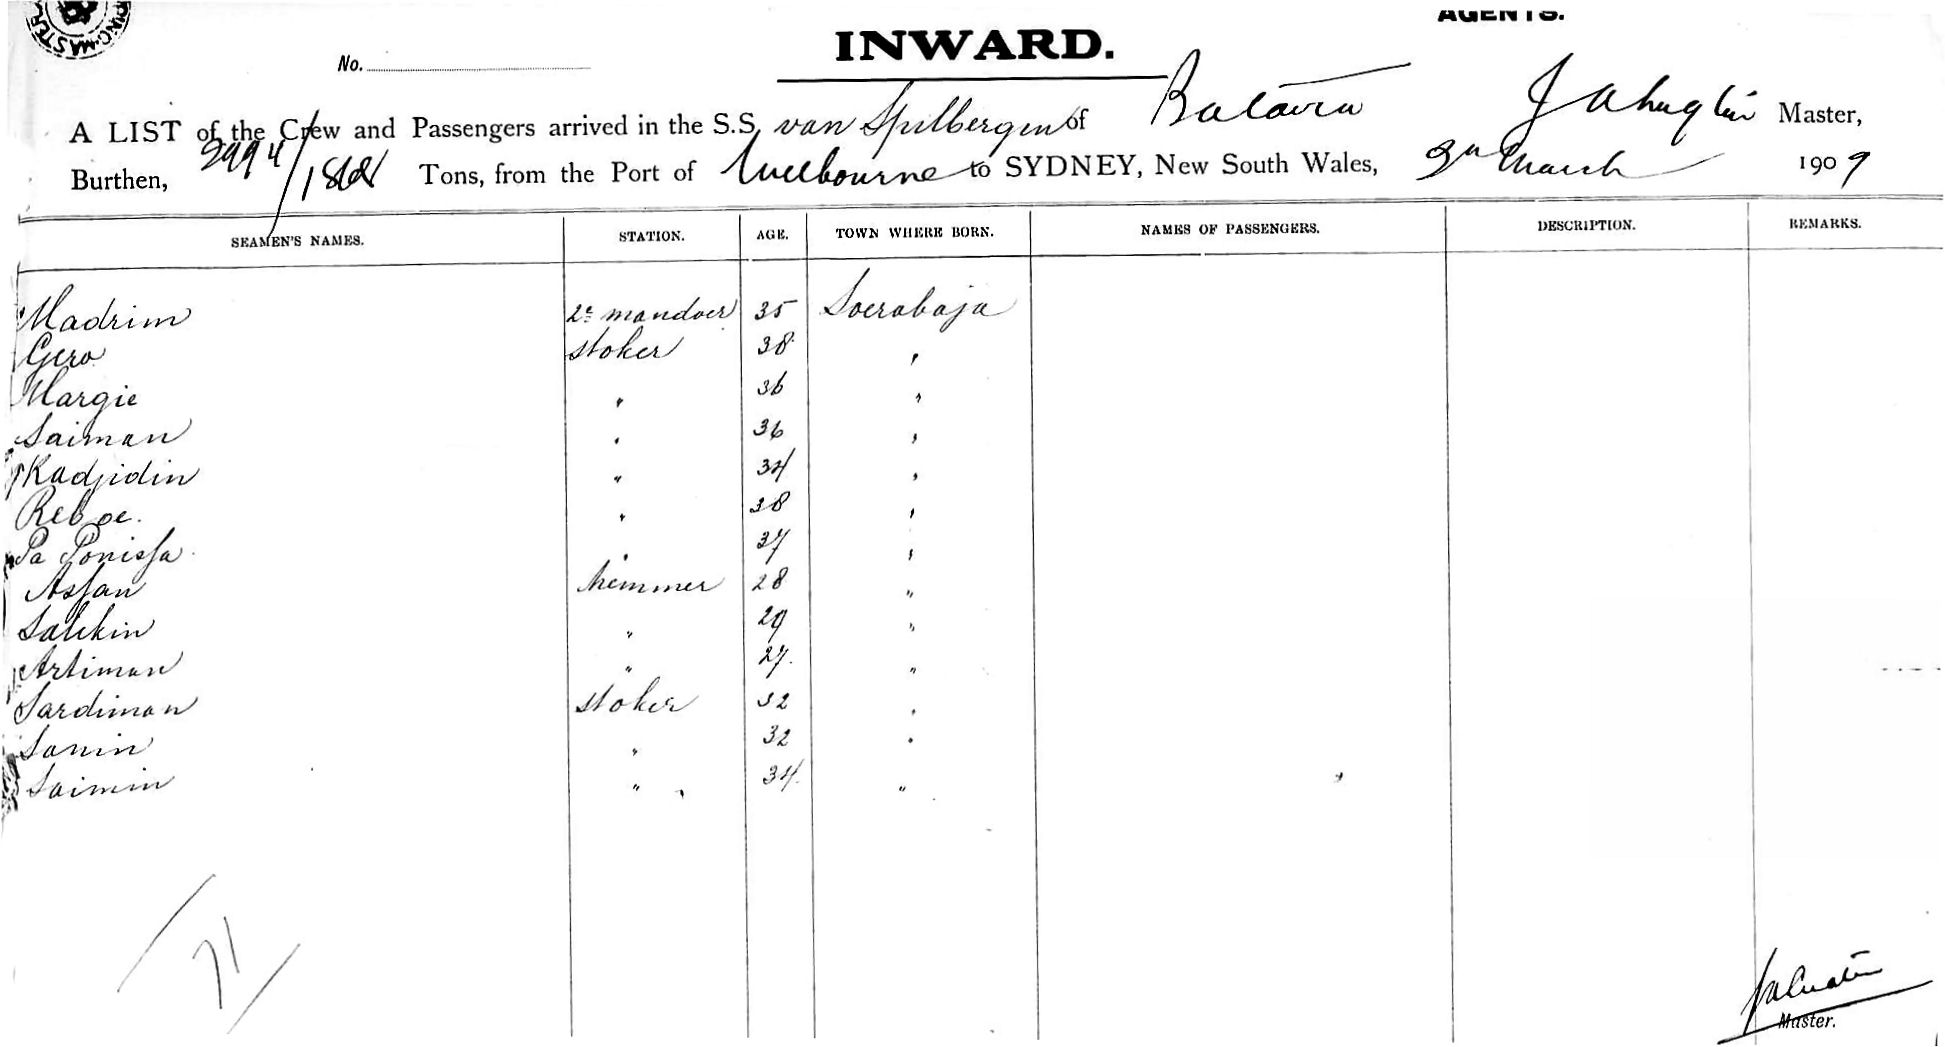 AGENTS.
INWARD.
No.
A LIST of the Crew and Passengers arrived in the S.S. van Spilbergen of Batavia Master,
Burthen, 2994/ Tons, from the Port of Melbourne to SYDNEY, New South Wales, March 1909
SEAMEN'S NAMES. STATION. AGE. TOWN WHERE BORN. NAMES OF PASSENGERS. DESCRIPTION. REMARKS.
Madrim 2e mandoer 35 Soerabaja
Gero stoker 38 "
Margie " 36 "
Saiman " 36 "
Kadjidin " 34 "
Reboe. " 38 "
Pa Ponissa " 37 "
Assan 28 "
Salikin " 29 "
Artiman " 27. "
Sardiman stoker 32 "
Sanin " 32 "
Saimin " 34. "
71
Master.